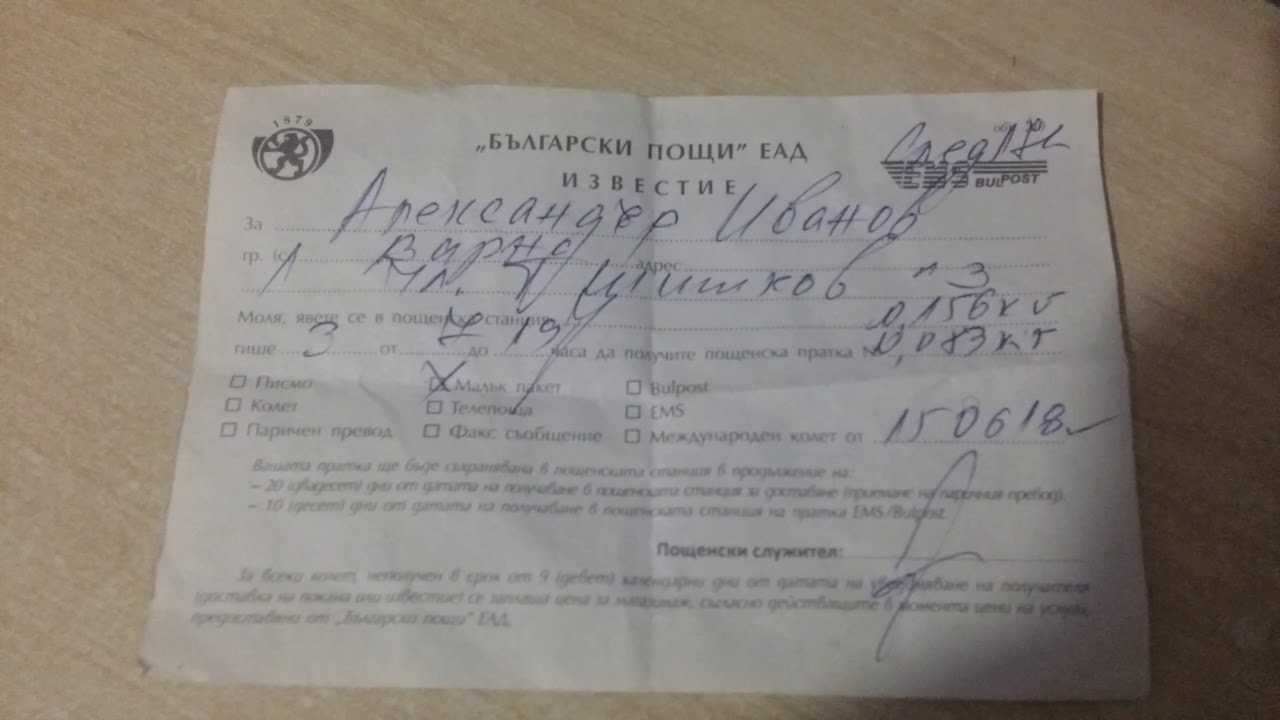 1879
„БЪЛГАРСКИ ПОЩИ" ЕАД
ИЗВЕСТИЕ
След 17ч
EMS BULPOST
За Александър Иванов
гр. (с) Варна адрес
ул. Т Шишков 3
Моля, явете се в пощенска станция 0,156кг
гише 3 от 17 до 19 часа да получите пощенска пратка № 0,083кг
Писмо Малък пакет Bulpost
Колет Телепоща EMS
Паричен превод Факс съобщение Международен колет от 150618
Вашата пратка ще бъде съхранявана в пощенската станция в продължение на:
– 20 (двадесет) дни от датата на получаване в пощенската станция за доставяне (приемане на паричния превод).
– 10 (десет) дни от датата на получаване в пощенската станция на пратка EMS/Bulpost.
Пощенски служител:
За всеки колет, неполучен в срок от 9 (девет) календарни дни от датата на уведомяване на получателя
(доставка на покана или известие) се заплаща цена за магазинаж, съгласно действащите в момента цени на услуги,
предоставяни от „Български пощи" ЕАД.